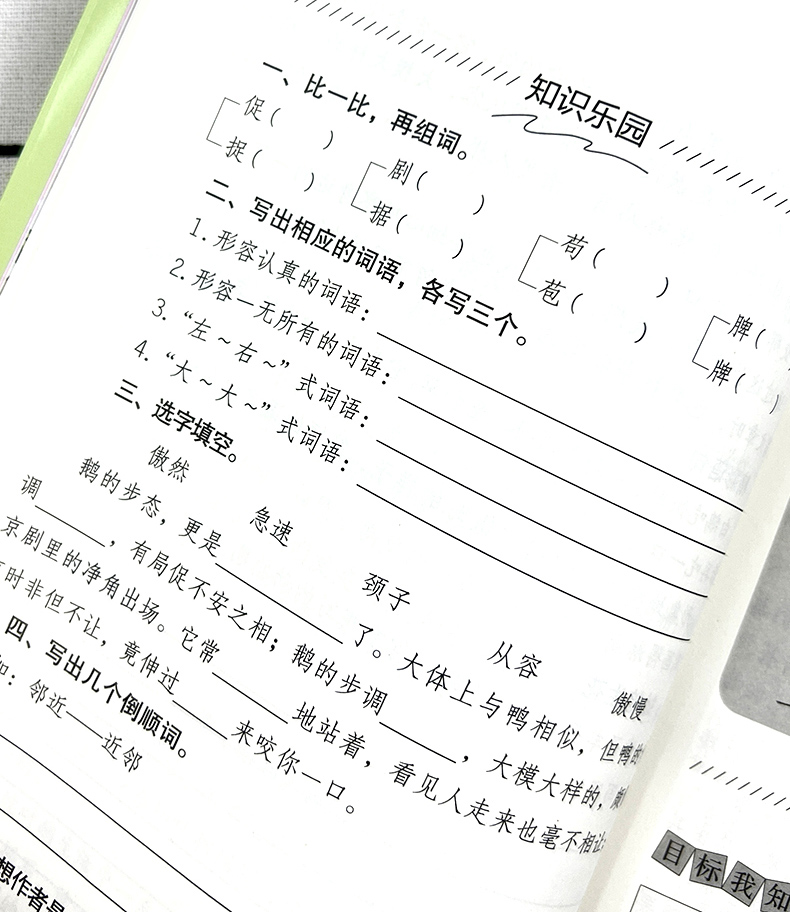 知识乐园
一、比一比，再组词。
促（　　） 剧（　　） 苟（　　） 脾（
捉（　　） 据（　　） 苞（　　） 牌（　　）
二、写出相应的词语，各写三个。
1. 形容认真的词语：
2. 形容一无所有的词语：
3. “左～右～”式词语：
4. “大～大～”式词语：
三、选字填空。
傲然 急速 颈子 从容 傲慢
鹅的步态，更是____了。大体上与鸭相似，但鸭的
调____，有局促不安之相；鹅的步调____，大模大样的，颇
京剧里的净角出场。它常____地站着，看见人走来也毫不相让；
时非但不让，竟伸过____来咬你一口。
四、写出几个倒顺词。
如：邻近——近邻
想作者是
目标我知